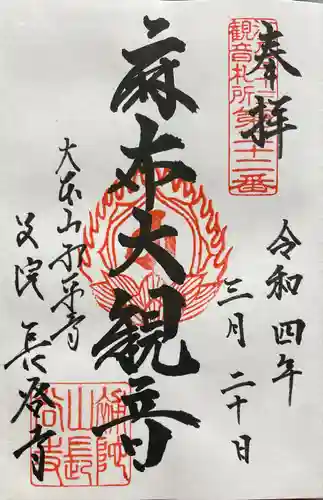 奉拝
江戸三十三
観音札所第
二十二番
令和四年
三月二十日
麻布大観音
大本山永平寺
別院 長谷寺
補陀
山長
谷寺